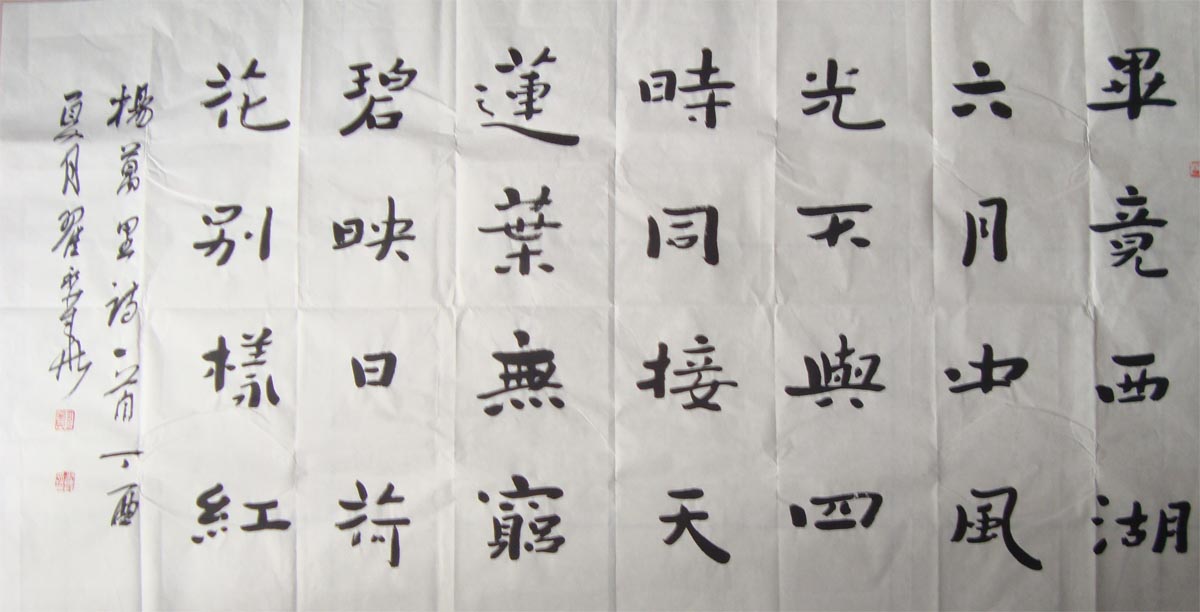 畢竟西湖
六月中風
光不與四
時同接天
蓮葉無窮
碧映日荷
花別樣紅
楊萬里詩一首丁酉
夏月翟